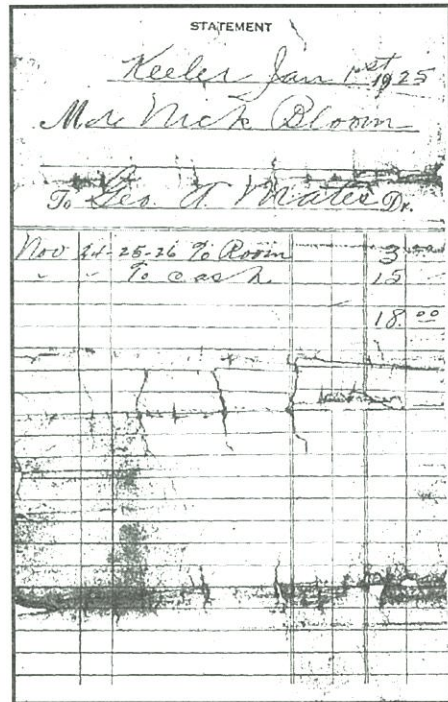 STATEMENT
Keeler Jan 1st 1925
Mr Nick Bloom
To Geo. A Mates Dr.
Nov 24-25-26 To Room 3 00
" " To cash 15
18.00